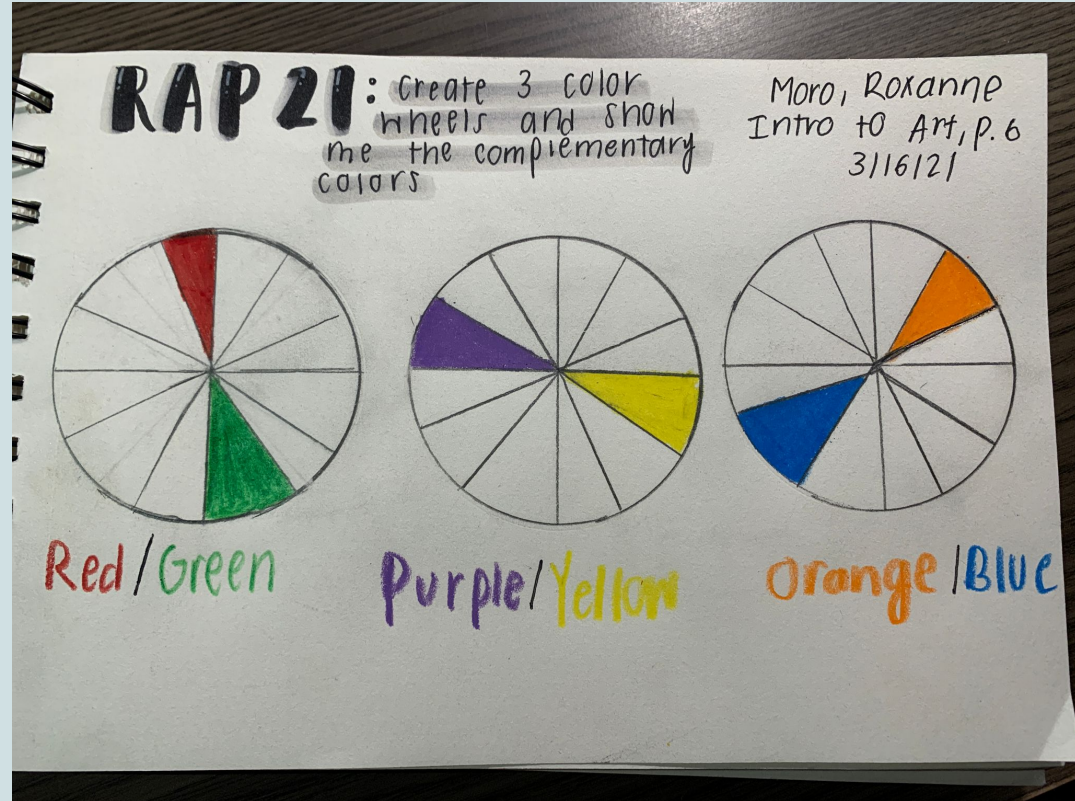 RAP 21: Create 3 color
wheels and show
me the complementary
colors
Moro, Roxanne
Intro to Art, p. 6
3/16/21
Red/Green
Purple/Yellow
Orange/Blue